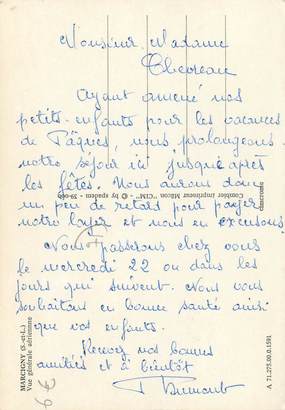 Monsieur, Madame
Thevreau
Ayant amené nos
petits-enfants pour les vacances
de Pâques, nous prolongeons
notre séjour ici jusque après
les fêtes. Nous aurons donc
un peu de retard pour payer
notre loyer et nous en excusons
Nous passerons chez vous
le mercredi 22 ou dans les
jours qui suivent. Nous vous
souhaitons en bonne santé ainsi
que vos enfants.
Recevez nos bonnes
amitiés et à bientôt
Dumont
MARCIGNY (S.-et-L.)
Vue générale aérienne
6 €
Combier Imprimeur Mâcon "CIM" - © by spadem - 39-069
A 71.275.00.0.1591